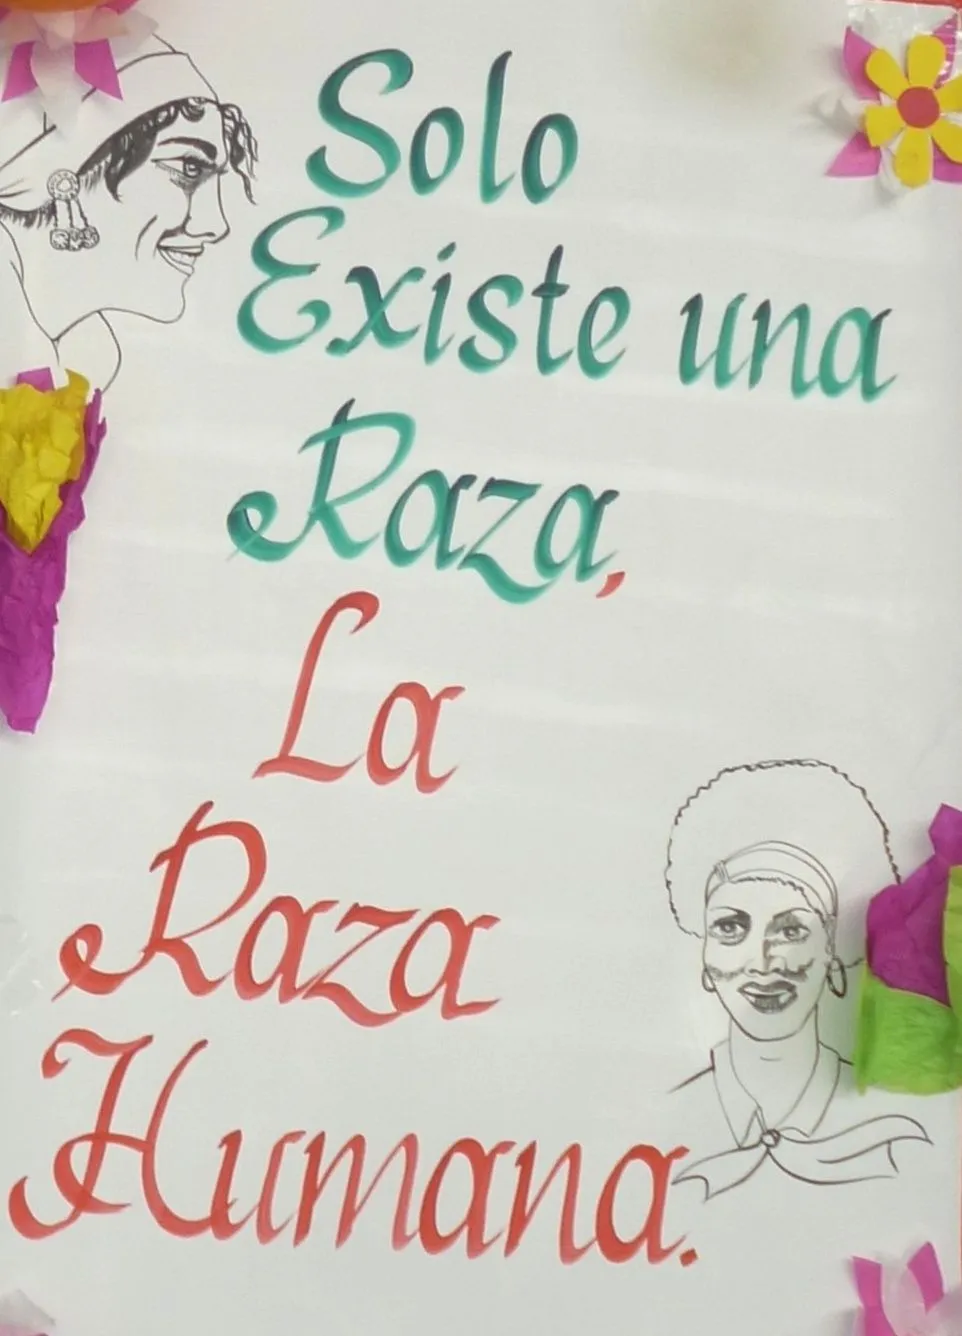 Solo
Existe una
Raza,
La
Raza
Humana.